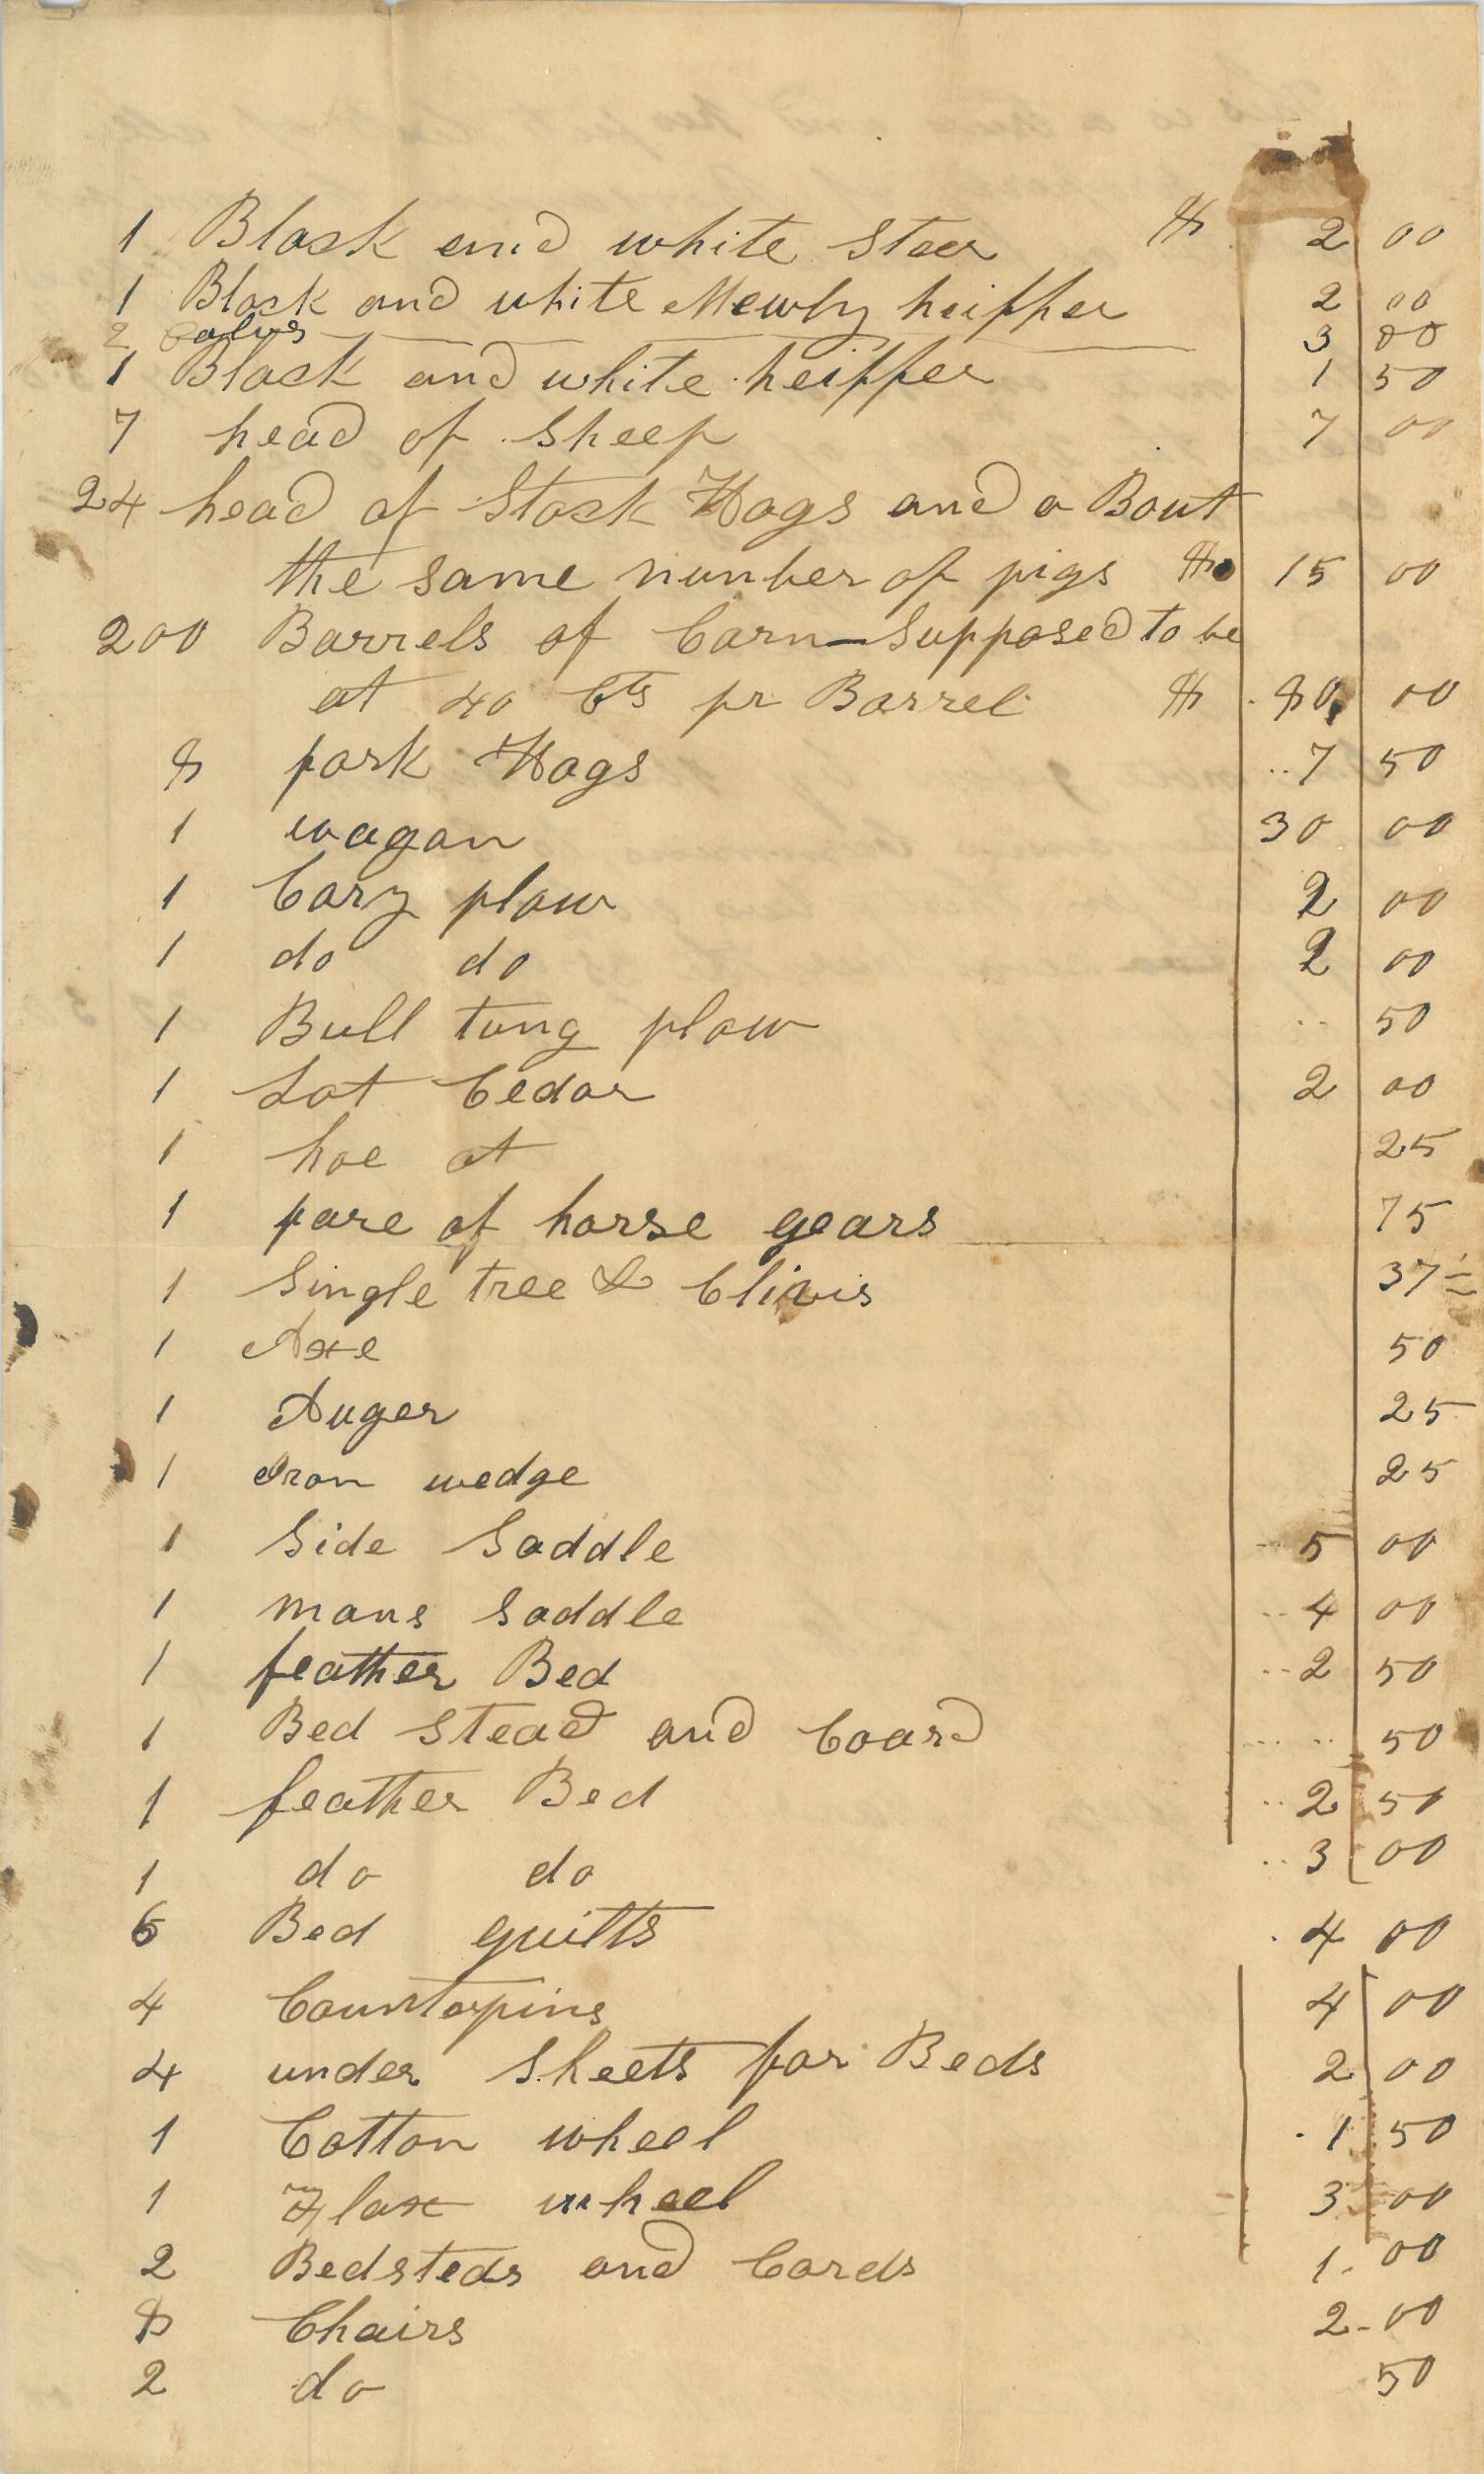 1 Black and white Steer $ 2 00
1 Black and white Mewly heiffer 2 00
2 Calves 3 00
1 Black and white heiffer 1 50
7 head of Sheep 7 00
24 head of Stock Hogs and a Bout
the same number of pigs $ 15 00
200 Barrels of Corn Supposed to be
at 40 Cts pr Barrel $ 80 00
8 pork Hogs 7 50
1 wagon 30 00
1 Cary plow 2 00
1 do do 2 00
1 Bull tung plow 50
1 Lot Cedar 2 00
1 hoe at 25
1 pare of horse gears 75
1 Single tree & Clivis 37
1 Axe 50
1 Auger 25
1 Iron wedge 25
1 Side Saddle 5 00
1 mans Saddle 4 00
1 feather Bed 2 50
1 Bed Stead and Coard 50
1 feather Bed 2 50
1 do do 3 00
6 Bed quilts 4 00
4 Countorpins 4 00
4 under Sheets for Beds 2 00
1 Cotton wheel 1 50
1 Flax wheel 3 00
2 Bedsteds and Cords 1-00
8 Chairs 2-00
2 do 50